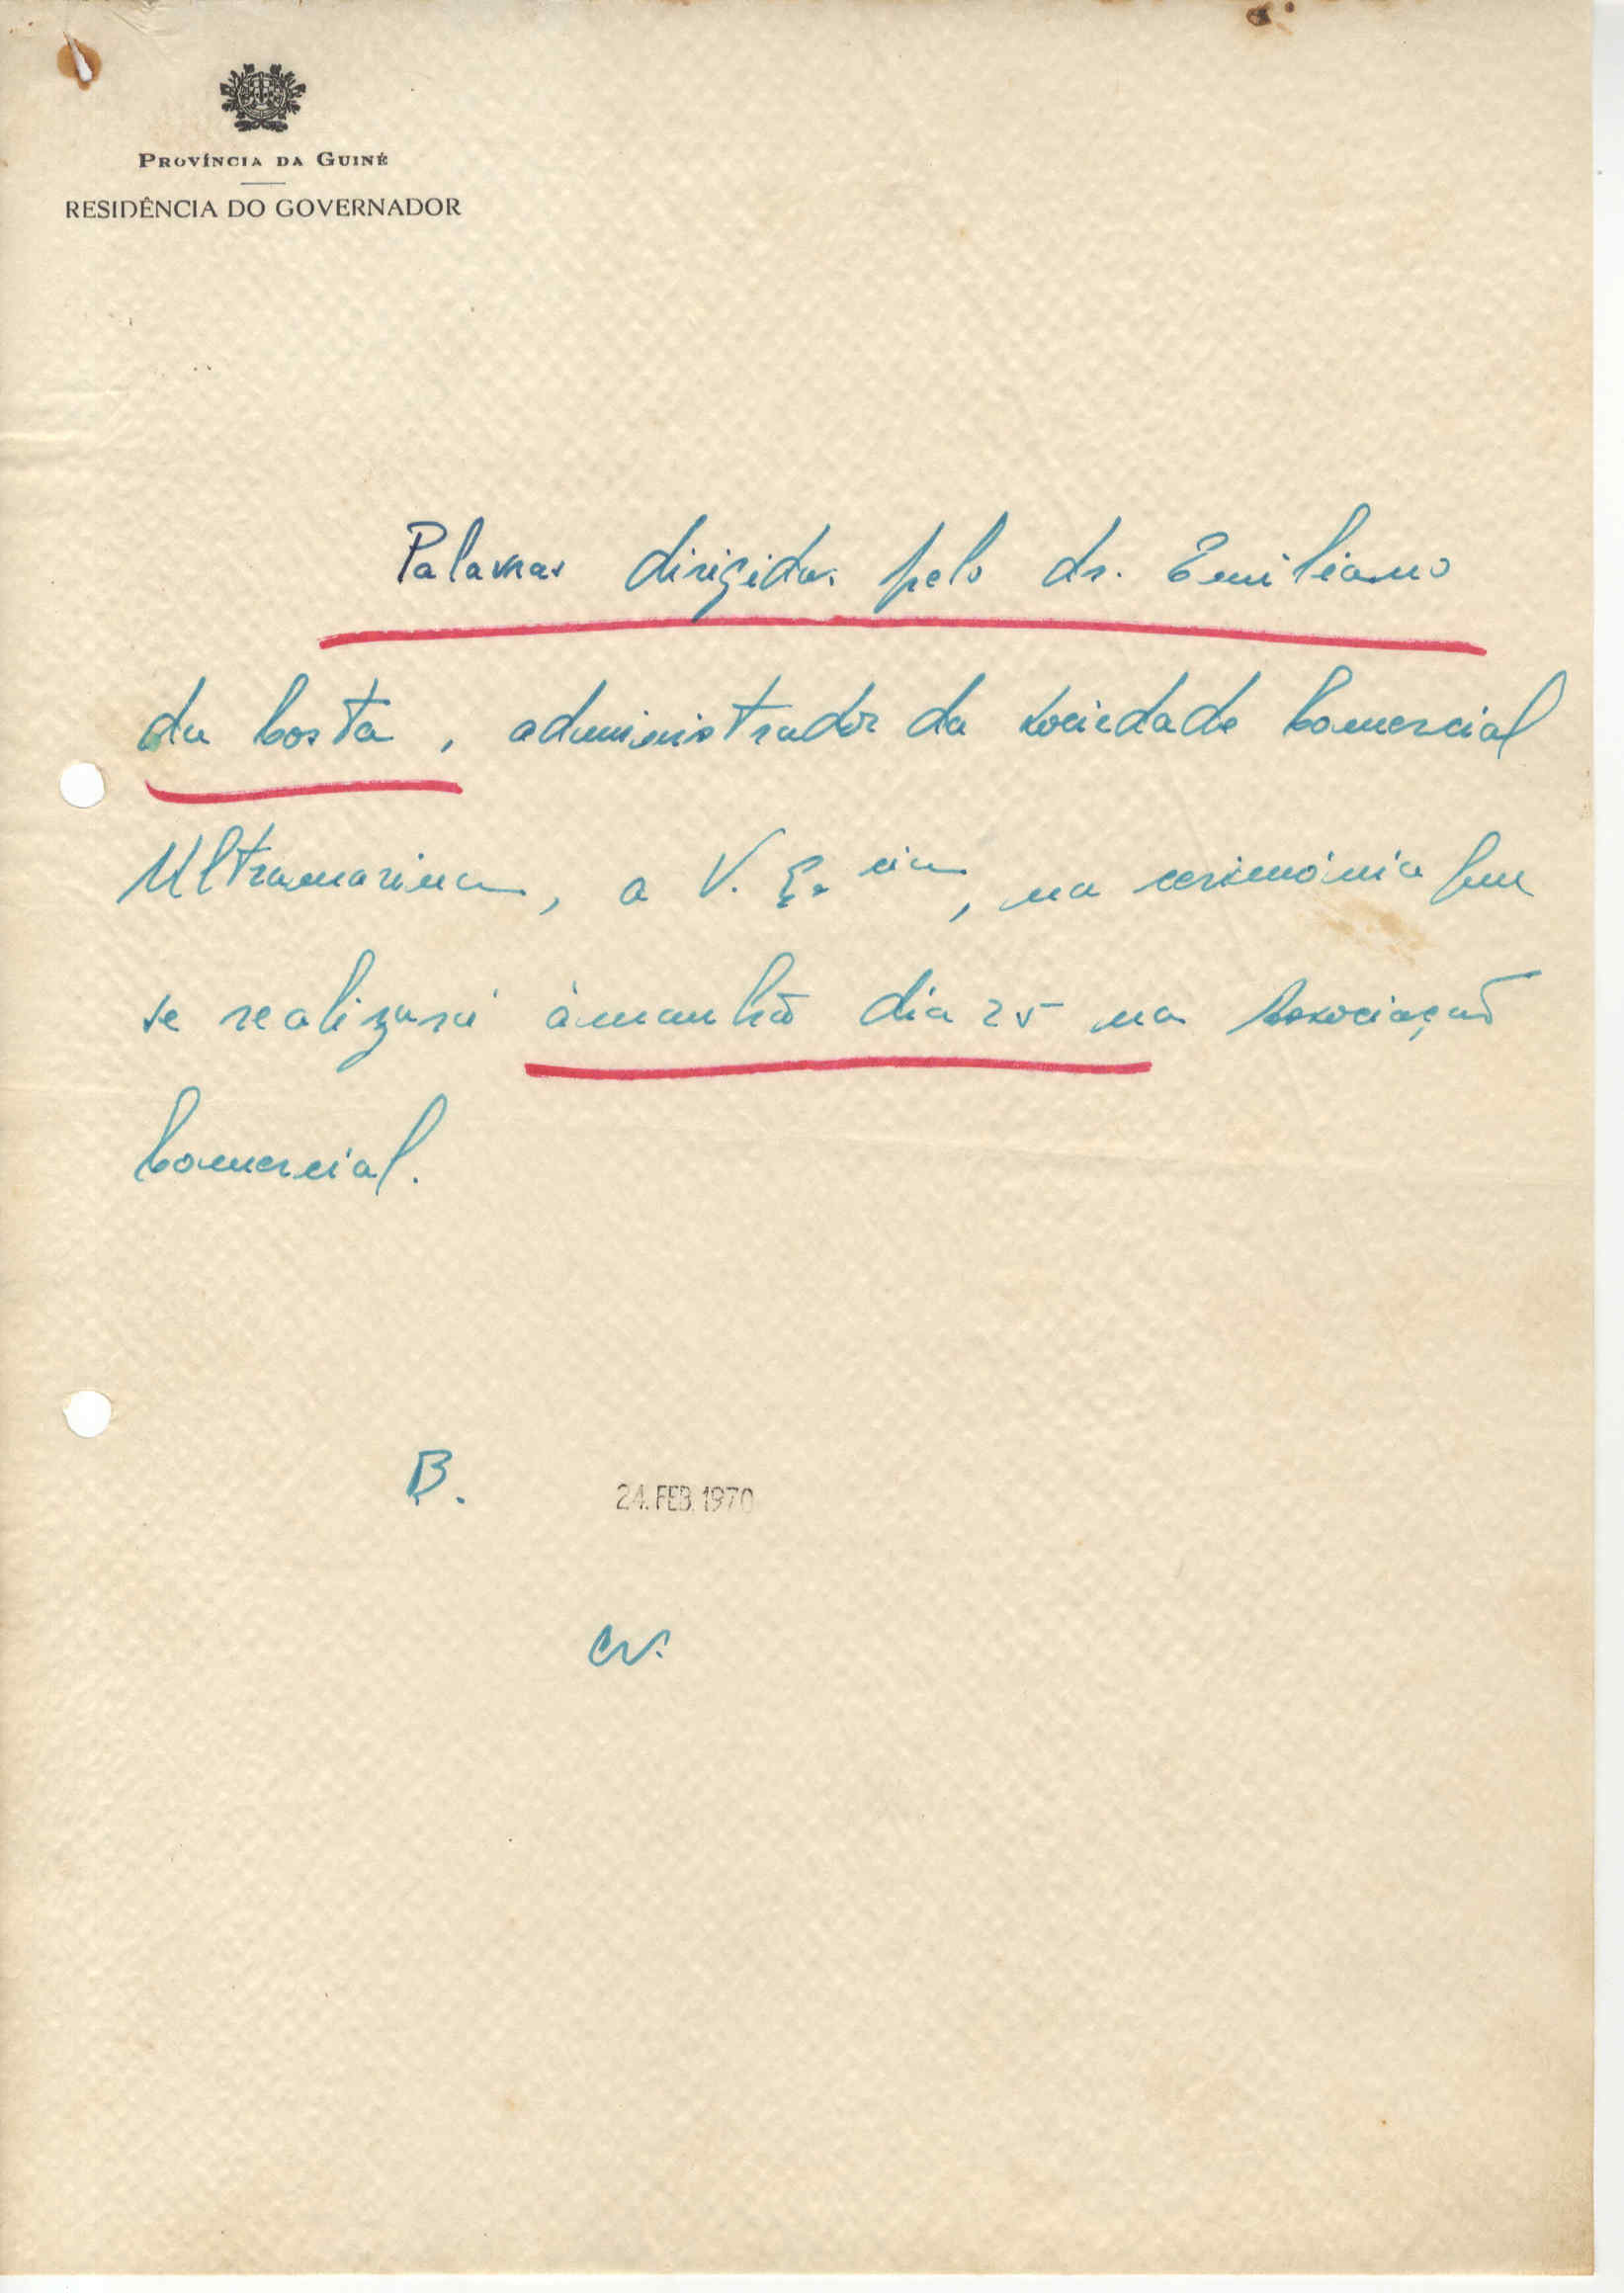 PROVÍNCIA DA GUINÉ
RESIDÊNCIA DO GOVERNADOR
Palavras dirigidas pelo dr. Emiliano
da Costa, administrador da Sociedade Comercial
Ultramarina, a V. Ex.cia, na cerimónia que
se realizará àmanhã dia 25 na Associação
Comercial.
B. 24. FEB. 1970